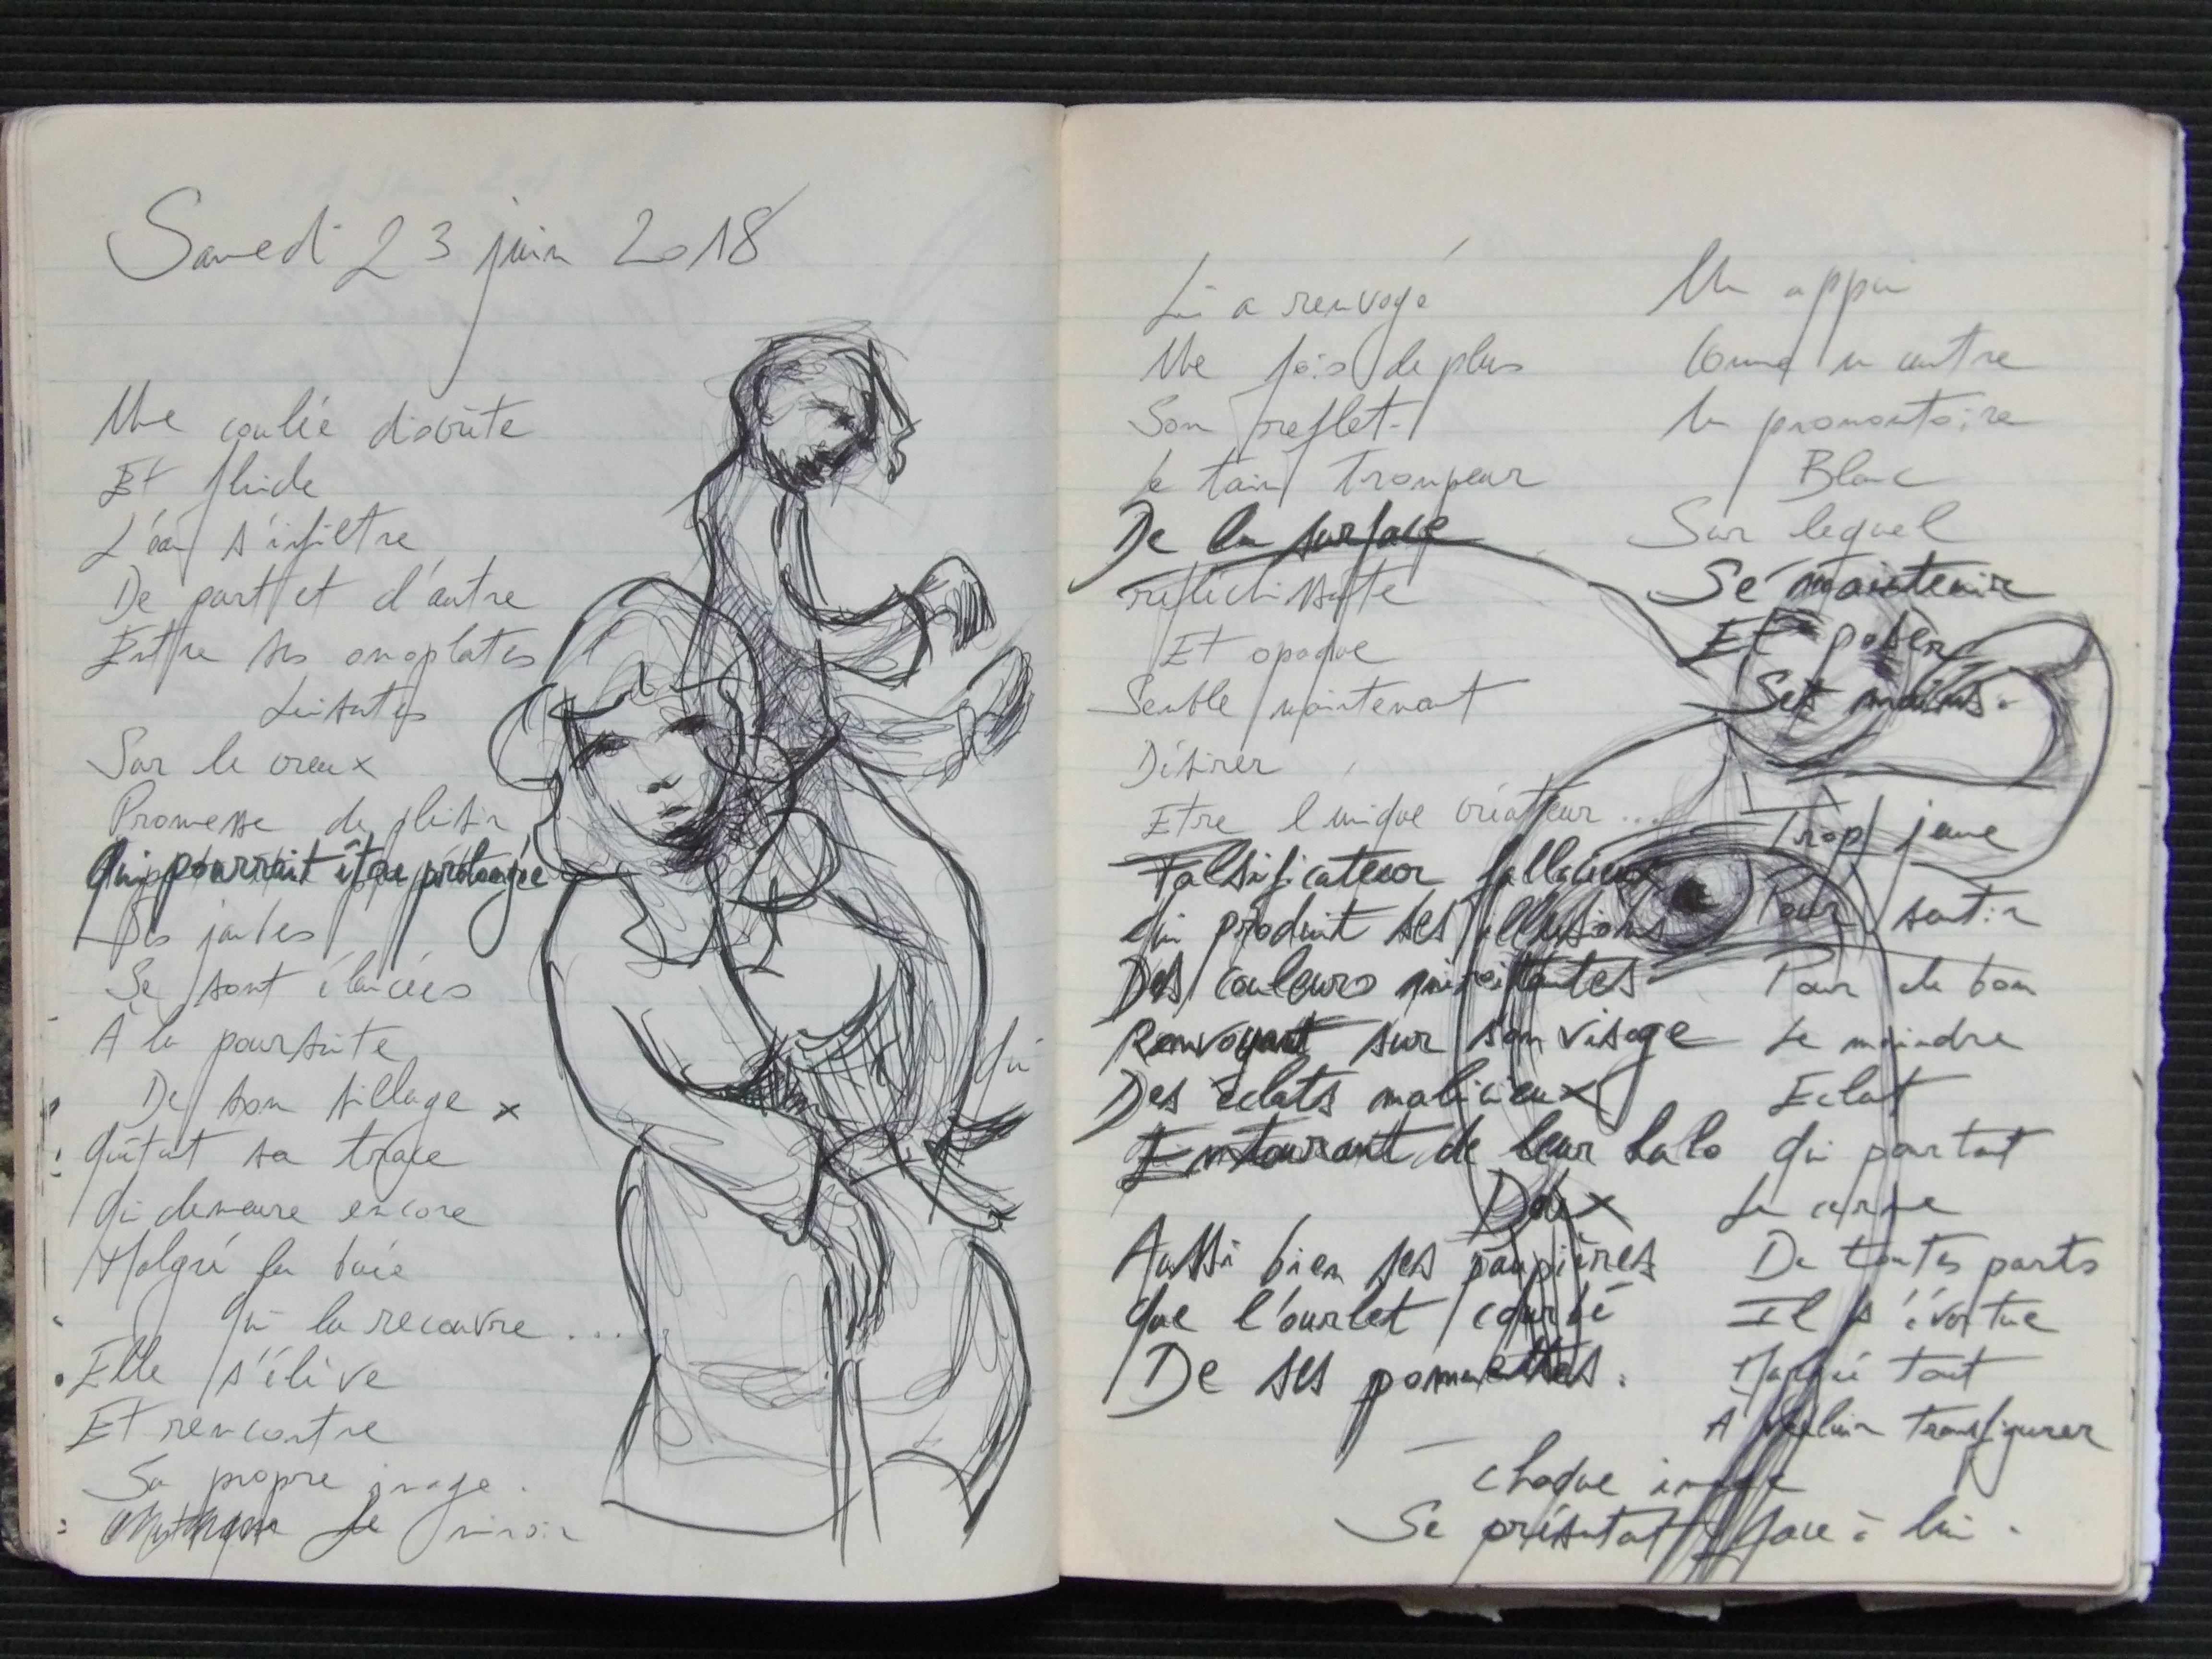 Samedi 23 juin 2018
Une coulée discrète
Et fluide
L'eau s'infiltre
De part et d'autre
Entre ses omoplates
Luisantes
Sur le creux
Promesse de plaisir
Qui pourrait être prolongée
Ses jambes
Se sont élancées
À la poursuite
De son sillage x
Quêtant sa trace
Qui demeure encore
Malgré la buée
Qui la recouvre ...
Elle s'élève
Et rencontre
Sa propre image.
Le miroir
Qui
Lui a renvoyé
Une fois de plus
Son reflet
Le tain trompeur
De la surface
réfléchissante
Et opaque
Semble maintenant
Désirer
Etre l'unique créateur ...
Falsificateur fallacieux
Qui produit ses illusions
Des couleurs miroitantes
Renvoyant sur son visage
Des éclats malicieux
Entourant de leur halo
Doux
Aussi bien ses paupières
Que l'ourlet courbé
De ses pommettes.
Un appui
Comme un autre
Un promontoire
Blanc
Sur lequel
Se maintenir
Et poser
Ses mains.
Trop jeune
Pour sentir
Pour de bon
Le moindre
Eclat
Qui pourtant
Le cerne
De toutes parts
Il s'évertue
Malgré tout
À vouloir transfigurer
Chaque image
Se présentant face à lui.